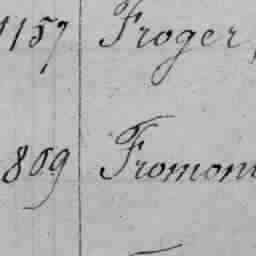 1157 Froger,
809 Fromon